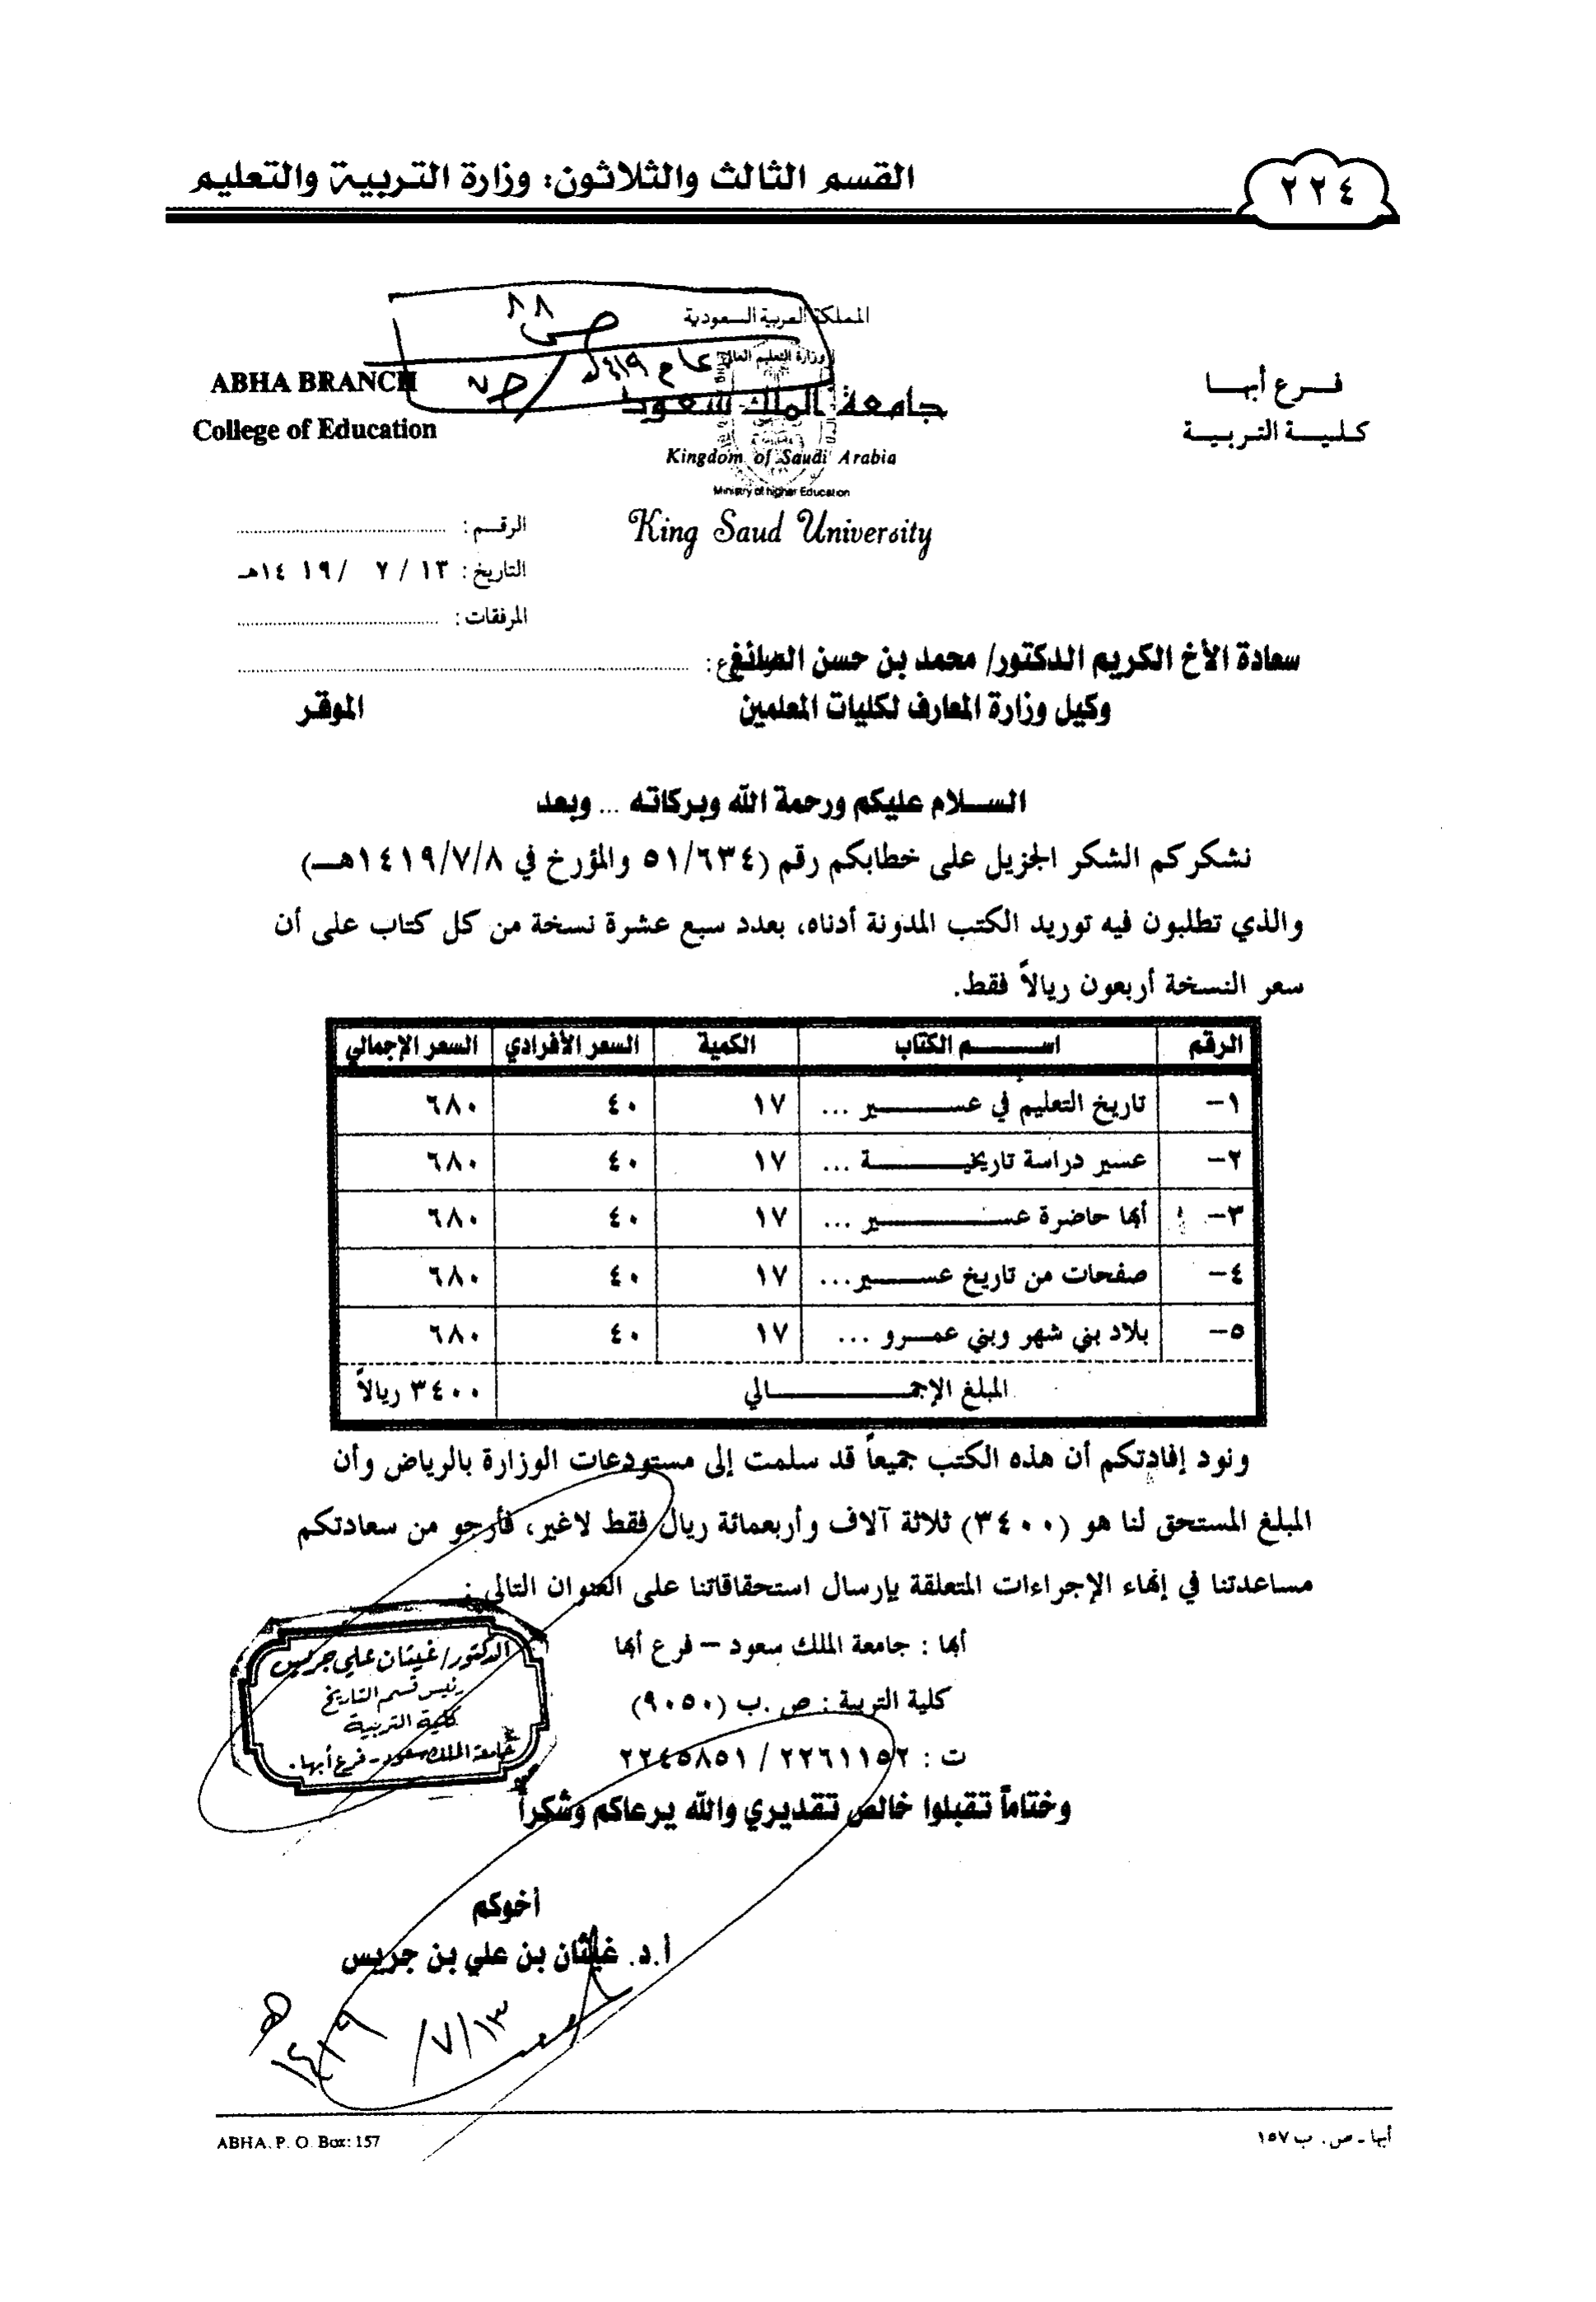 ٢٢٤
القسم الثالث والثلاثون: وزارة التربية والتعليم
المملكة العربية السعودية
وزارة التعليم العالي
جامعة الملك سعود
Kingdom of Saudi Arabia
Ministry of higher Education
King Saud University
فرع أبها
كلية التربية
ABHA BRANCH
College of Education
ص ٨٨
عام ١٤١٩هـ
الرقم :
التاريخ : ١٣ / ٧ / ١٤١٩هـ
المرفقات :
سعادة الأخ الكريم الدكتور/ محمد بن حسن الصائغ
وكيل وزارة المعارف لكليات المعلمين الموقر
السلام عليكم ورحمة الله وبركاته ... وبعد
نشكركم الشكر الجزيل على خطابكم رقم (٥١/٦٣٤ والمؤرخ في ١٤١٩/٧/٨هـ)
والذي تطلبون فيه توريد الكتب المدونة أدناه، بعدد سبع عشرة نسخة من كل كتاب على أن
سعر النسخة أربعون ريالاً فقط.
الرقم اسم الكتاب الكمية السعر الأفرادي السعر الإجمالي
١- تاريخ التعليم في عسير ... ١٧ ٤٠ ٦٨٠
٢- عسير دراسة تاريخية ... ١٧ ٤٠ ٦٨٠
٣- أبها حاضرة عسير ... ١٧ ٤٠ ٦٨٠
٤- صفحات من تاريخ عسير... ١٧ ٤٠ ٦٨٠
٥- بلاد بني شهر وبني عمرو ... ١٧ ٤٠ ٦٨٠
المبلغ الإجمالي ٣٤٠٠ ريالاً
ونود إفادتكم أن هذه الكتب جميعاً قد سلمت إلى مستودعات الوزارة بالرياض وأن
المبلغ المستحق لنا هو (٣٤٠٠) ثلاثة آلاف وأربعمائة ريال فقط لاغير، فأرجو من سعادتكم
مساعدتنا في إنهاء الإجراءات المتعلقة بإرسال استحقاقاتنا على العنوان التالي :
أبها : جامعة الملك سعود – فرع أبها
كلية التربية : ص .ب (٩٠٥٠)
ت : ٢٢٦١١٥٢ / ٢٢٤٥٨٥١
الدكتور/ غيثان علي جريس
رئيس قسم التاريخ
كلية التربية
جامعة الملك سعود - فرع أبها .
وختاماً تقبلوا خالص تقديري والله يرعاكم وشكراً
أخوكم
أ.د. غيثان بن علي بن جريس
١٣/٧/١٤١٩هـ
أبها - ص . ب ١٥٧
ABHA. P. O. Box: 157